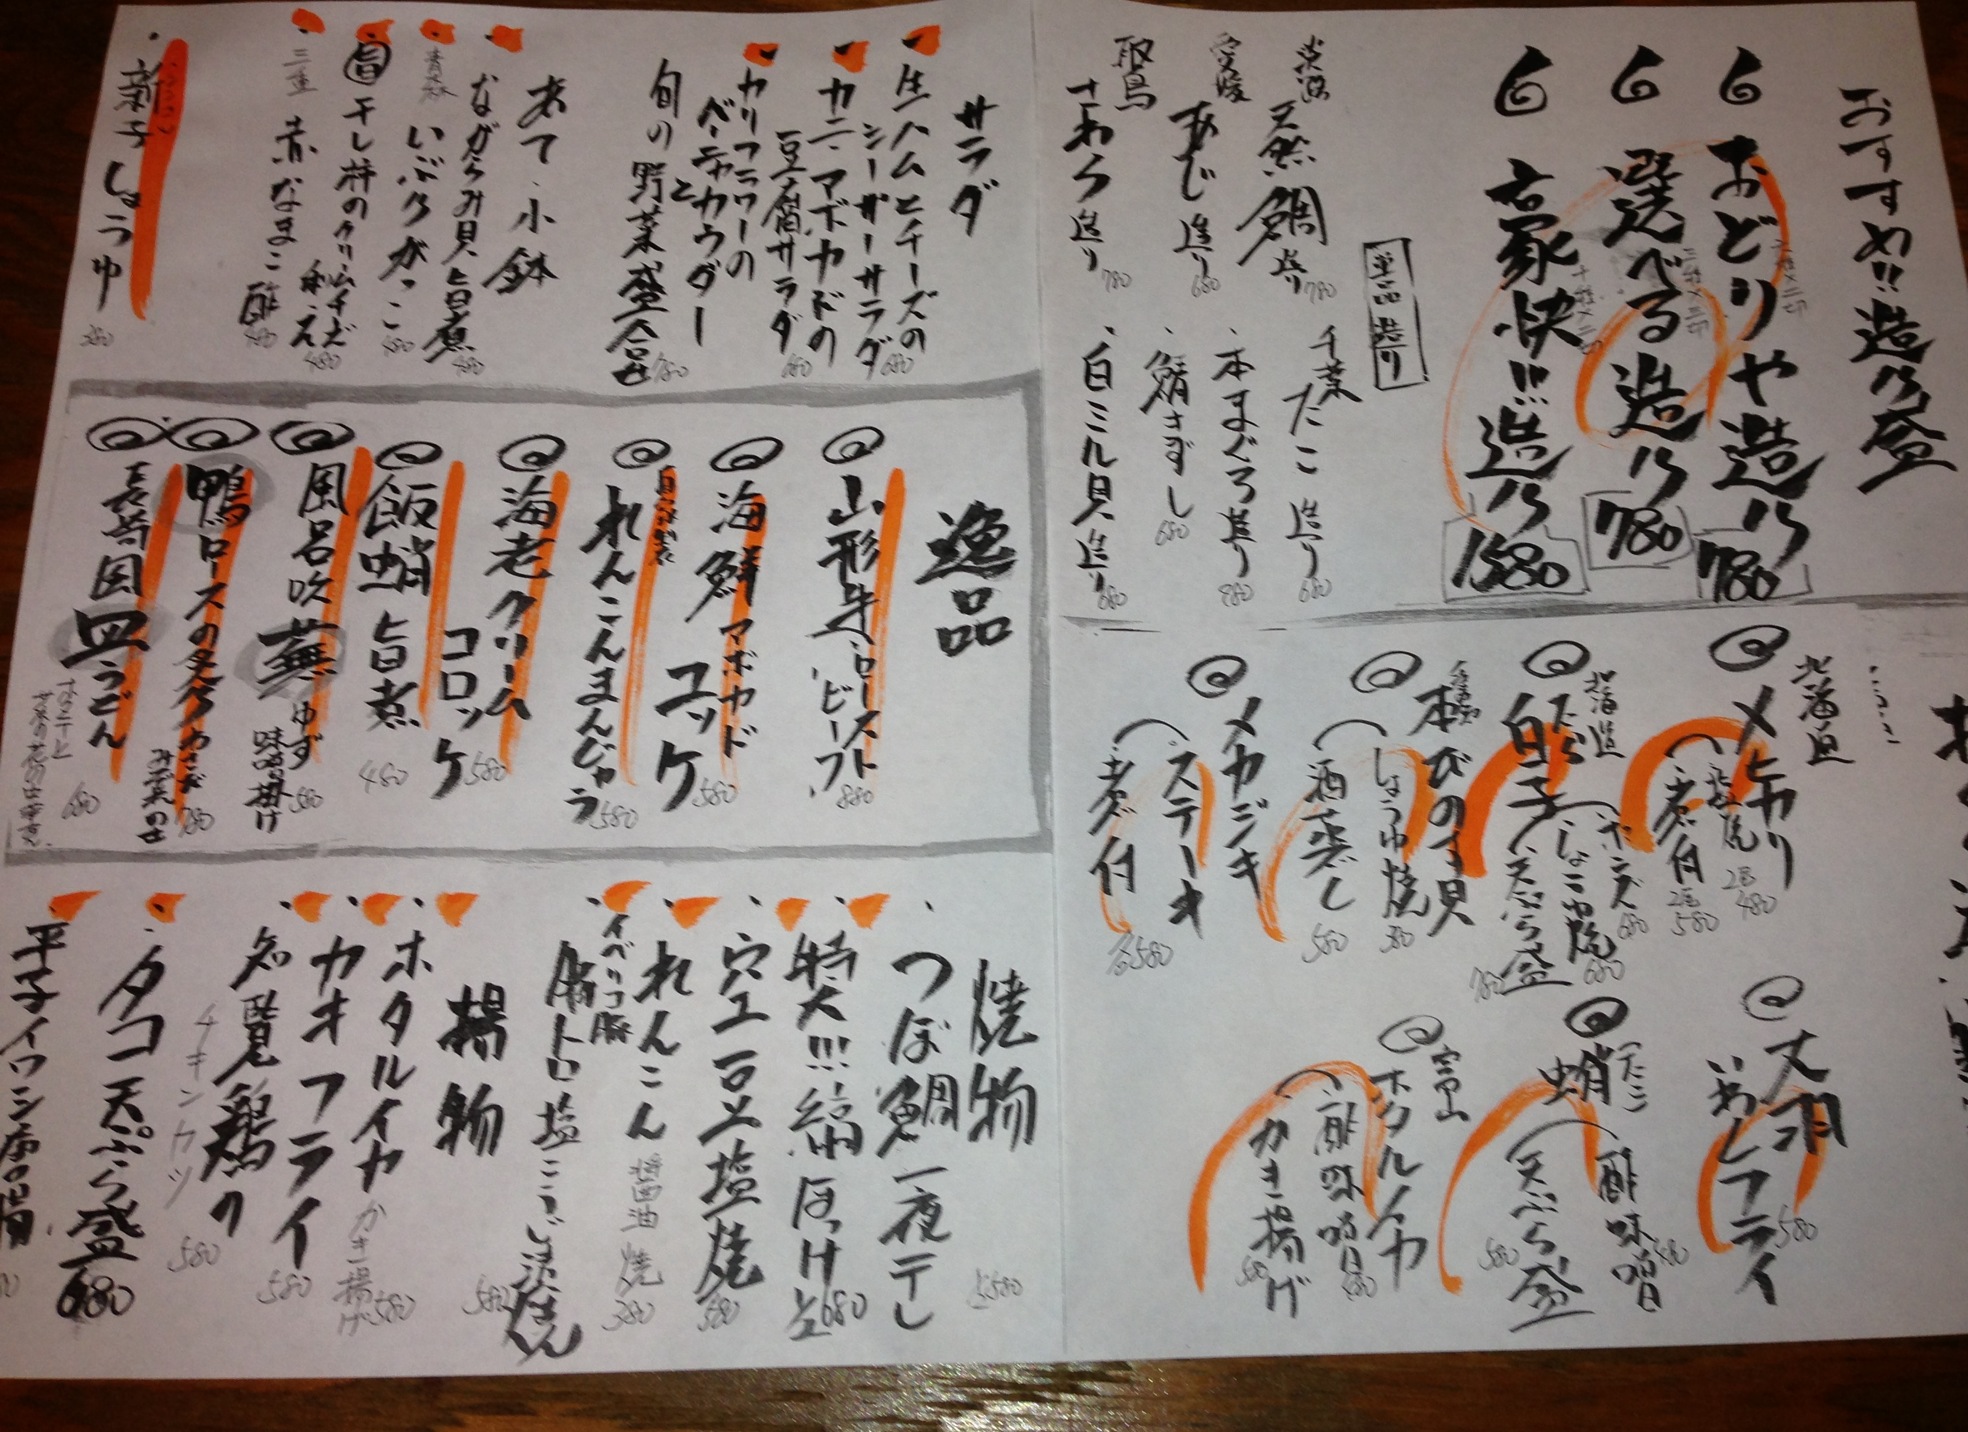 おすすめ!!造り盛
おどりや造り
780
選べる造り
780
豪快!!!造り
1580
単品造り
淡路
天然鯛造り
780
愛媛
あじ造り
680
鳥取
さわら造り
780
千葉
たこ造り
680
本まぐろ造り
880
鯖きずし
680
白ミル貝造り
680
北海道
メヒカリ
塩焼
480
煮付
580
北海道
たら
白子
ポンズ
680
しょうゆ焼
680
天ぷら盛
780
本びのす貝
しょうゆ焼
580
酒蒸し
580
メカジキ
ステーキ
煮付
580
丈羽
いわしフライ
580
蛸(たこ)
酢味噌
480
天ぷら盛
580
富山
ホタルイカ
酢味噌
480
かき揚げ
580
サラダ
生ハムとチーズの
シーザーサラダ
680
カニ・アボカドの
豆腐サラダ
680
カリフラワーの
バーニャカウダー
と
旬の野菜盛合せ
780
あて・小鉢
ながらみ貝旨煮
480
青森
いぶりがっこ
480
干し柿のクリームチーズ
和え
480
三重
赤なまこ酢
480
新子しょうゆ
380
逸品
山形牛ローストビーフ
880
海鮮アボカド
ユッケ
580
自家製
れんこんまんじゅう
580
海老クリーム
コロッケ
580
飯蛸旨煮
480
風呂吹蕪
ゆず
味噌掛け
580
鴨ロースのタタキ
780
長崎皿うどん
680
焼物
つぼ鯛一夜干し
580
特大!!!縞ほっけ
680
空豆塩焼
580
れんこん醤油焼
380
イベリコ豚
豚トロ塩こうじ漬焼
580
揚物
ホタルイカかき揚げ
580
カキフライ
580
知覧鶏の
チキンカツ
580
タコ天ぷら盛
680
平子イワシ唐揚